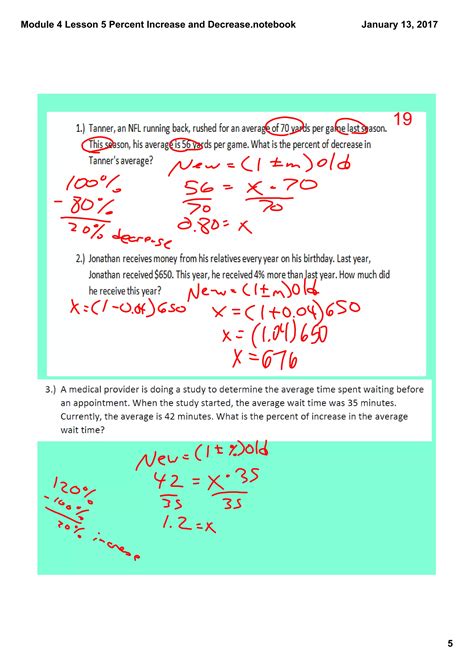 Module 4 Lesson 5 Percent Increase and Decrease.notebook
January 13, 2017
19
1.) Tanner, an NFL running back, rushed for an average of 70 yards per game last season.
This season, his average is 56 yards per game. What is the percent of decrease in
Tanner's average?
New = (1 ± m) old
100%
- 80%
20% decrease
56 = x · 70
70 70
0.80 = x
2.) Jonathan receives money from his relatives every year on his birthday. Last year,
Jonathan received $650. This year, he received 4% more than last year. How much did
he receive this year?
New = (1 ± m) old
x = (1 - 0.04) 650
x = (1 + 0.04) 650
x = (1.04) 650
x = 676
3.) A medical provider is doing a study to determine the average time spent waiting before
an appointment. When the study started, the average wait time was 35 minutes.
Currently, the average is 42 minutes. What is the percent of increase in the average
wait time?
New = (1 ± %) old
120%
- 100%
20% increase
42 = x · 35
35 35
1.2 = x
5